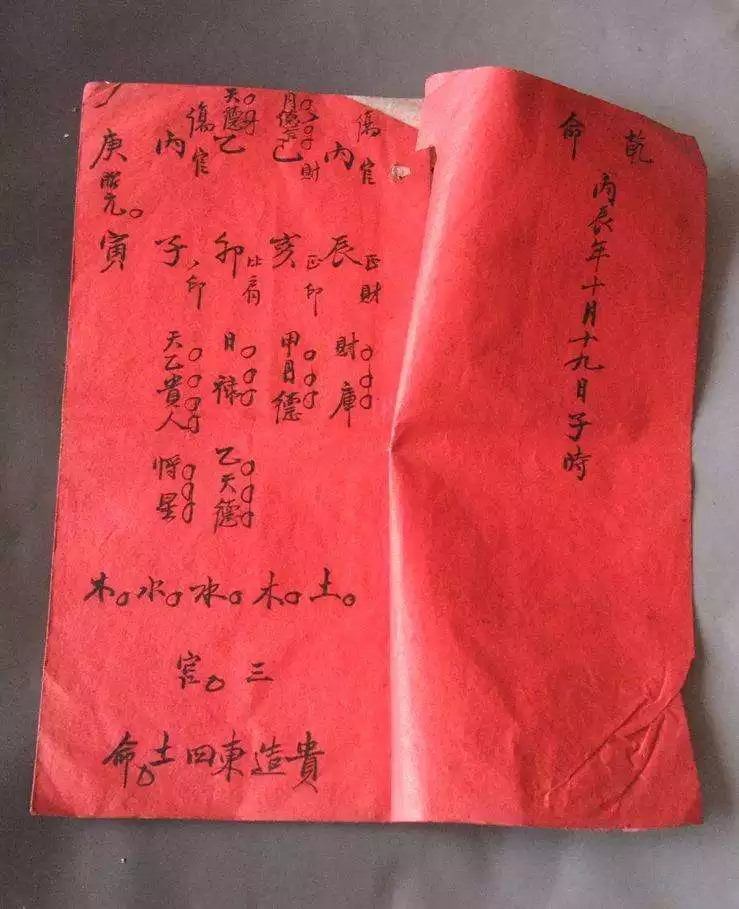 乾命
丙辰年十月十九日子時
傷官
丙
辰
正財
財庫
月德合
財
己
亥
正印
甲月德
天德
乙
卯
比肩
日祿
乙天德
傷官
丙
子
印
天乙貴人
將星
庚
胎元
寅
土木水水木
三官
貴造東四土命